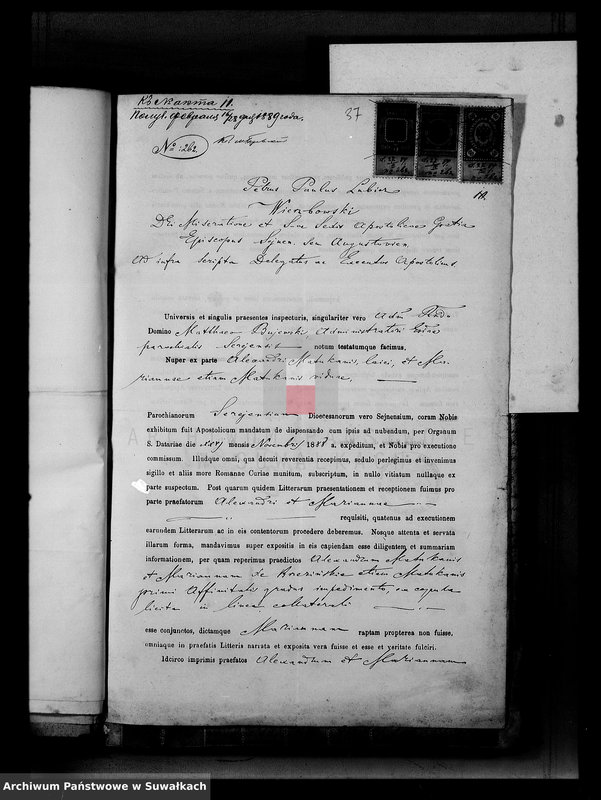 Къ № акта 11.
Получ. февраля 16/28 дня 1889 года.
37
№: 262
11.
Petrus Paulus Lubicz
Wierzbowski
Dei Miseratione et Stae Sedis Apostolicae Gratia
Episcopus Sejnen. seu Augustovien.
Ad infra scripta Delegatus ac Executor Apostolicus.
Universis et singulis praesentes inspecturis, singulariter vero Adm Rndo
Domino Matthaeo Bujewski, Administratori Ecclae
parochialis Serejensis notum testatumque facimus.
Nuper ex parte Alexandri Matukanis, laici, et Ma-
riannae etiam Matukanis viduae,
Parochianorum Serejensium Dioecesanorum vero Sejnensium, coram Nobis
exhibitum fuit Apostolicum mandatum de dispensando cum ipsis ad nubendum, per Organum
S. Datariae die mensis Novembris 1888 a. expeditum, et Nobis pro executione
commissum. Illudque omni, qua decuit reverentia recepimus, sedulo perlegimus et invenimus
sigillo et aliis more Romanae Curiae munitum, subscriptum, in nullo vitiatum nullaque ex
parte suspectum. Post quarum quidem Litterarum praesentationem et receptionem fuimus pro
parte praefatorum Alexandri et Mariannae
requisiti, quatenus ad executionem
earundem Litterarum ac in eis contentorum procedere deberemus. Nosque attenta et servata
illarum forma, mandavimus super expositis in eis capiendam esse diligentem et summariam
informationem, per quam reperimus praedictos Alexandrum Matukanis
et Mariannam de etiam Matukanis
primi Affinitatis gradus impedimento, ex copula
licita in linea collaterali
esse conjunctos, dictamque Mariannam raptam propterea non fuisse,
omniaque in praefatis Litteris narrata et exposita vera fuisse et esse et veritate fulciri.
Idcirco imprimis praefatos Alexandrum et Mariannam
Archiwum Państwowe w Suwałkach